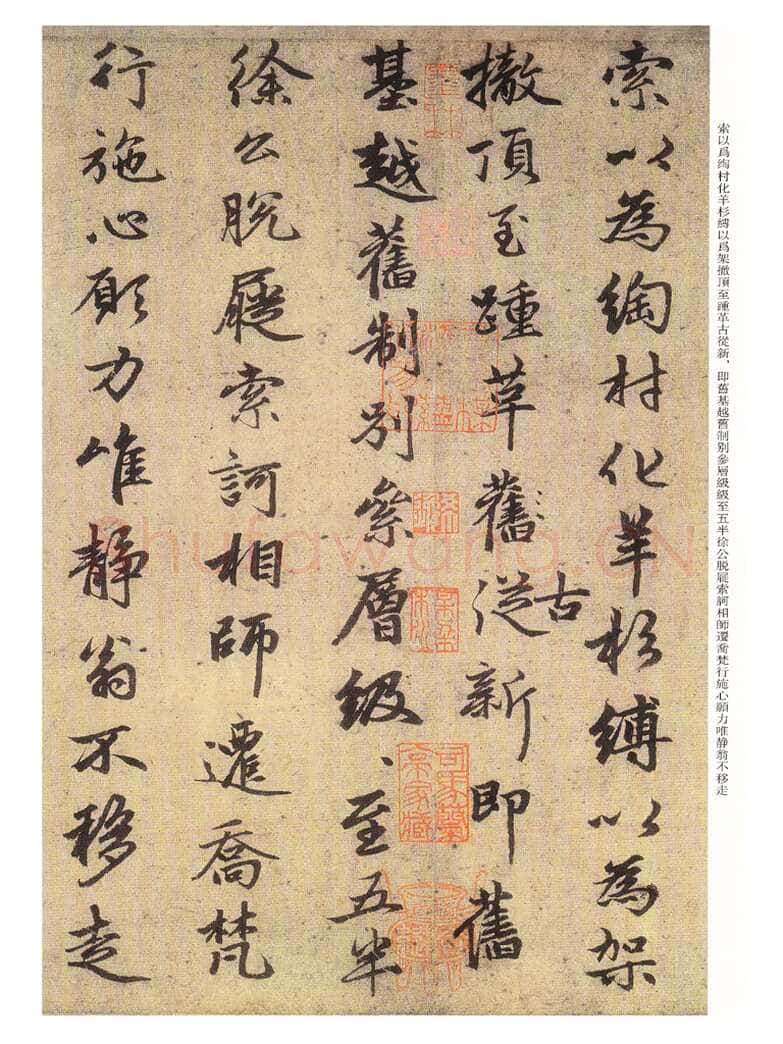 索以爲綯村化羊杉縛以爲架撤頂至踵革古從新、即舊基越舊制別參層級級至五半徐公脱屣索訶相師遷喬梵行施心願力唯静翁不移走
索以為綯村化羊杉縛以為架
撤頂至踵革舊從新即舊
古
基越舊制別叅層級、至五半
徐公脱屣索訶相師遷喬梵
行施心願力唯靜翁不移走
Shufawang.CN